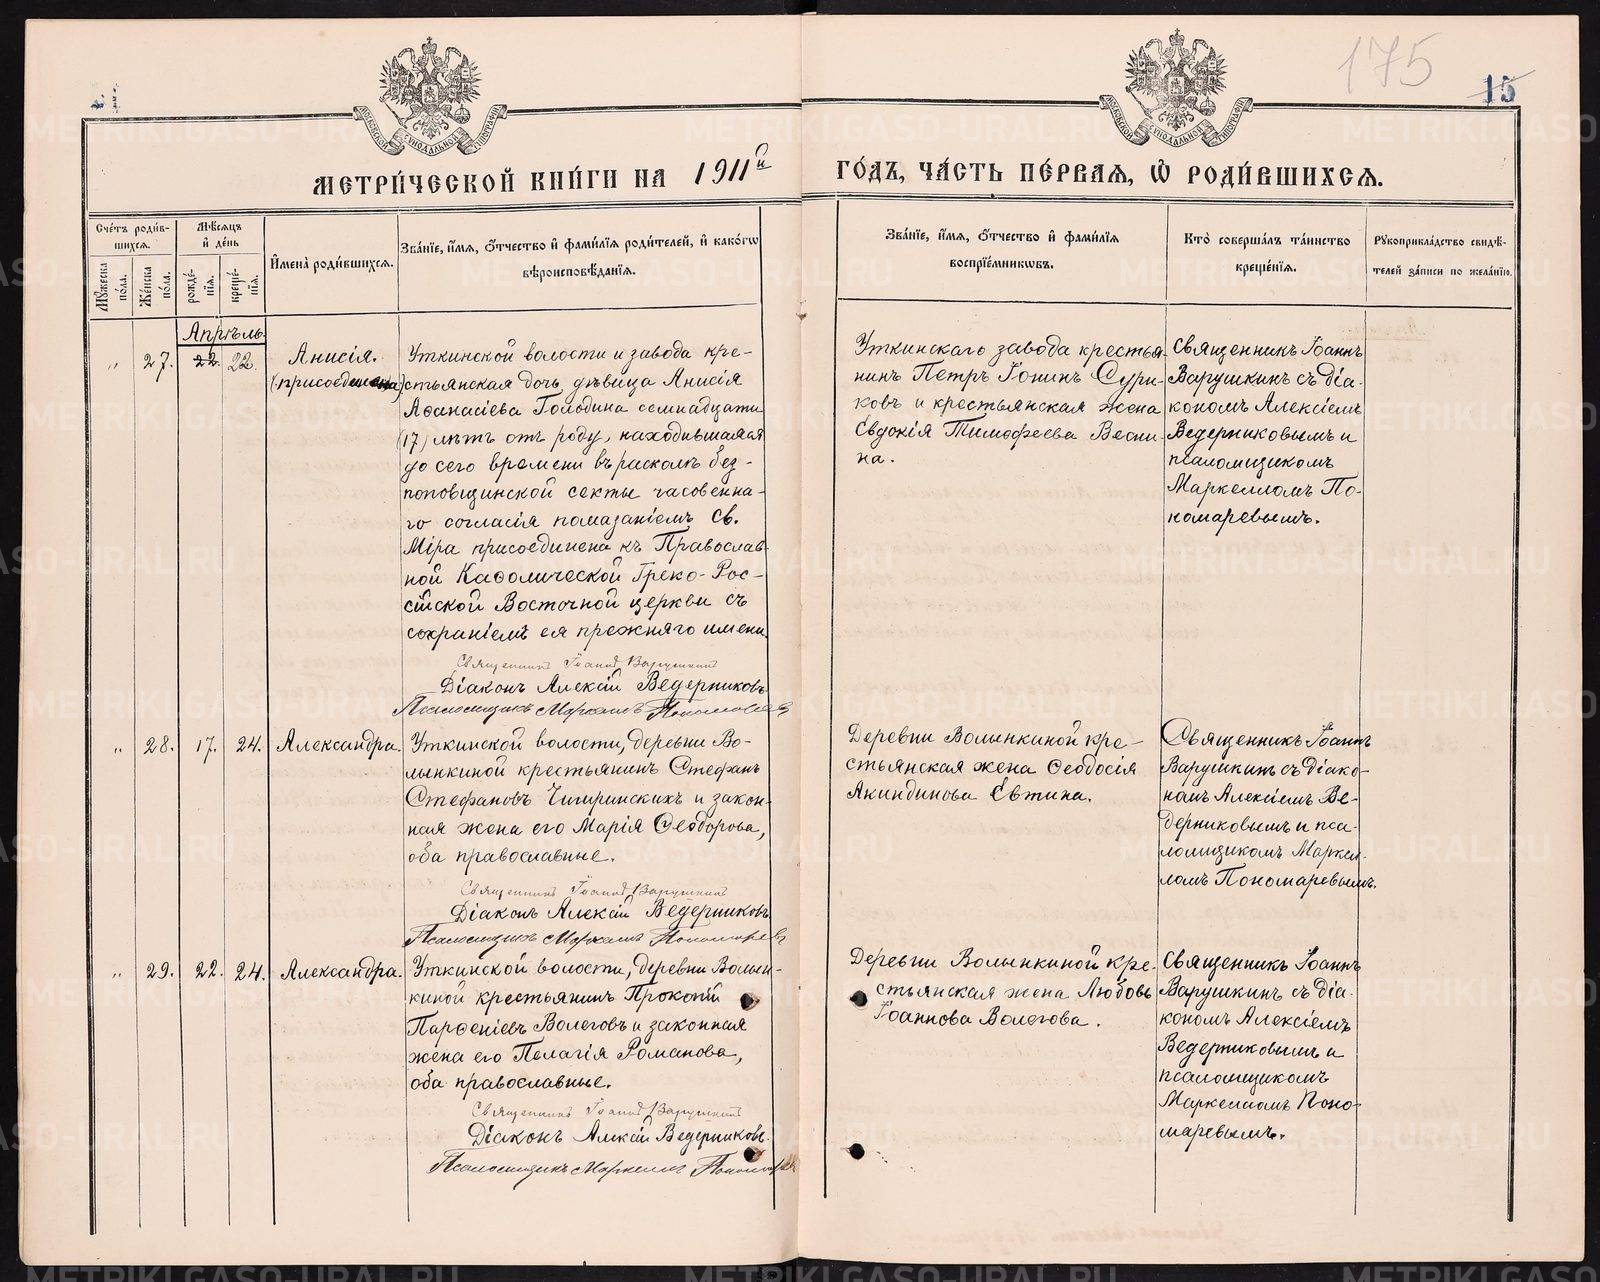 175
15
МОСКОВСКОЙ СѴНОДАЛЬНОЙ ТИПОГРАФІИ
МОСКОВСКОЙ СѴНОДАЛЬНОЙ ТИПОГРАФІИ
МЕТРИ́ЧЕСКОЙ КНИ́ГИ НА 1911й ГО́ДЪ, ЧА́СТЬ ПЕ́РВАѦ, Ѡ҆ РОДИ́ВШИХСѦ.
Сче́тъ роди́в-
шихсѧ.
Мꙋ́жеска по́ла.
Же́нска по́ла.
Мѣ́сѧцъ
и҆ де́нь
рожде́-
нїѧ.
креще́-
нїѧ.
И҆мена̀ роди́вшихсѧ.
Зва́нїе, и҆́мѧ, ѻ҆́тчество и҆ фами́лїѧ роди́телей, и҆ како́гѡ
вѣроисповѣ́данїѧ.
Зва́нїе, и҆́мѧ, ѻ҆́тчество и҆ фами́лїѧ
воспрїе́мникѡвъ.
Кто̀ соверша́лъ та́инство
креще́нїѧ.
Рꙋкоприкла́дство свидѣ́-
телей за́писи по жела́нїю.
Апрѣль.
" 27. 22. 22.
Анисія.
(присоединена)
Уткинской волости и завода кре-
стьянская дочь, дѣвица Анисія
Аѳанасіева Голодина семнадцати
(17) лѣтъ отъ роду, находившаяся
до сего времени въ расколѣ без-
поповщинской секты часовенна-
го согласія помазаніемъ Св.
Мѵра присоединена къ Православ-
ной Каѳолической Греко-Рос-
сійской Восточной церкви съ
сохраніемъ ея прежняго имени.
Священникъ Іоаннъ Варушкинъ
Діаконъ Алексій Ведерниковъ
Псаломщикъ Маркеллъ Пономаревъ
Уткинскаго завода крестья-
нинъ Петръ Іонинъ Сури-
ковъ и крестьянская жена
Евдокія Тимофеева Весни-
на.
Священникъ Іоаннъ
Варушкинъ съ діа-
кономъ Алексіемъ
Ведерниковымъ и
псаломщикомъ
Маркелломъ По-
номаревымъ.
" 28. 17. 24. Александра.
Уткинской волости, деревни Во-
лынкиной крестьянинъ Стефанъ
Стефановъ Чигиринскихъ и закон-
ная жена его Марія Ѳеодорова,
оба православные.
Священникъ Іоаннъ Варушкинъ
Діаконъ Алексій Ведерниковъ
Псаломщикъ Маркеллъ Пономаревъ
Деревни Волынкиной кре-
стьянская жена Ѳеодосія
Акиндинова Евтина.
Священникъ Іоаннъ
Варушкинъ съ діако-
номъ Алексіемъ Ве-
дерниковымъ и пса-
ломщикомъ Маркел-
ломъ Пономаревымъ.
" 29. 22. 24. Александра.
Уткинской волости, деревни Волын-
киной крестьянинъ Прокопій
Парѳеніевъ Волеговъ и законная
жена его Пелагія Романова,
оба православные.
Священникъ Іоаннъ Варушкинъ
Діаконъ Алексій Ведерниковъ
Псаломщикъ Маркеллъ Пономаревъ
Деревни Волынкиной кре-
стьянская жена Любовь
Іоаннова Волегова.
Священникъ Іоаннъ
Варушкинъ съ діа-
кономъ Алексіемъ
Ведерниковымъ и
псаломщикомъ
Маркелломъ Поно-
маревымъ.
METRIKI.GASO-URAL.RU